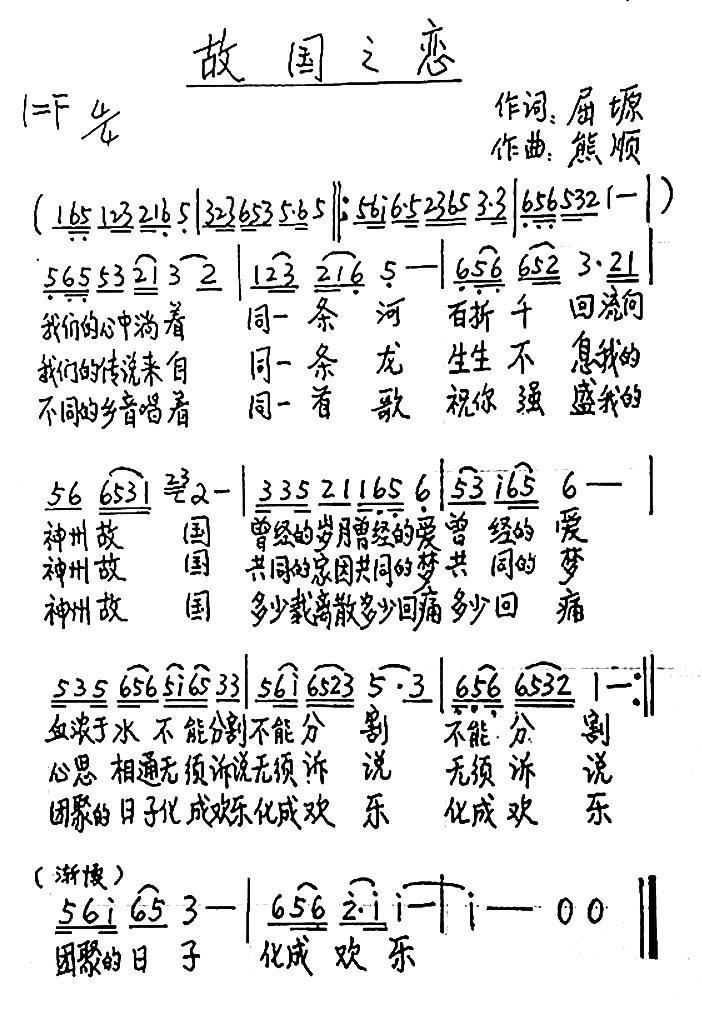 故国之恋
1=F 4/4
作词：屈塬
作曲：熊顺
(165 123 216 5 | 323 653 5·6 5 ‖: 56i 6·5 2365 3·3 | 656 532 1 — | )
565 53 21 3 2 | 123 216 5 — | 656 652 3·21 |
我们的心中淌着 同一条河 百折千回流向
我们的传说来自 同一条龙 生生不息我的
不同的乡音唱着 同一首歌 祝你强盛我的
56 6531 23 2 — | 335 21 165 6 | 53 i65 6 — |
神州故国 曾经的岁月曾经的爱曾经的爱
神州故国 共同的家园共同的梦共同的梦
神州故国 多少载离散多少回痛多少回痛
535 656 5i65 33 | 56i 6523 5·3 | 656 6532 1 — :‖
血浓于水不能分割不能分割 不能分割
心思相通无须诉说无须诉说 无须诉说
团聚的日子化成欢乐化成欢乐 化成欢乐
(渐慢)
56i 65 3 — | 656 2·i i — | i — 0 0 ‖
团聚的日子 化成欢乐